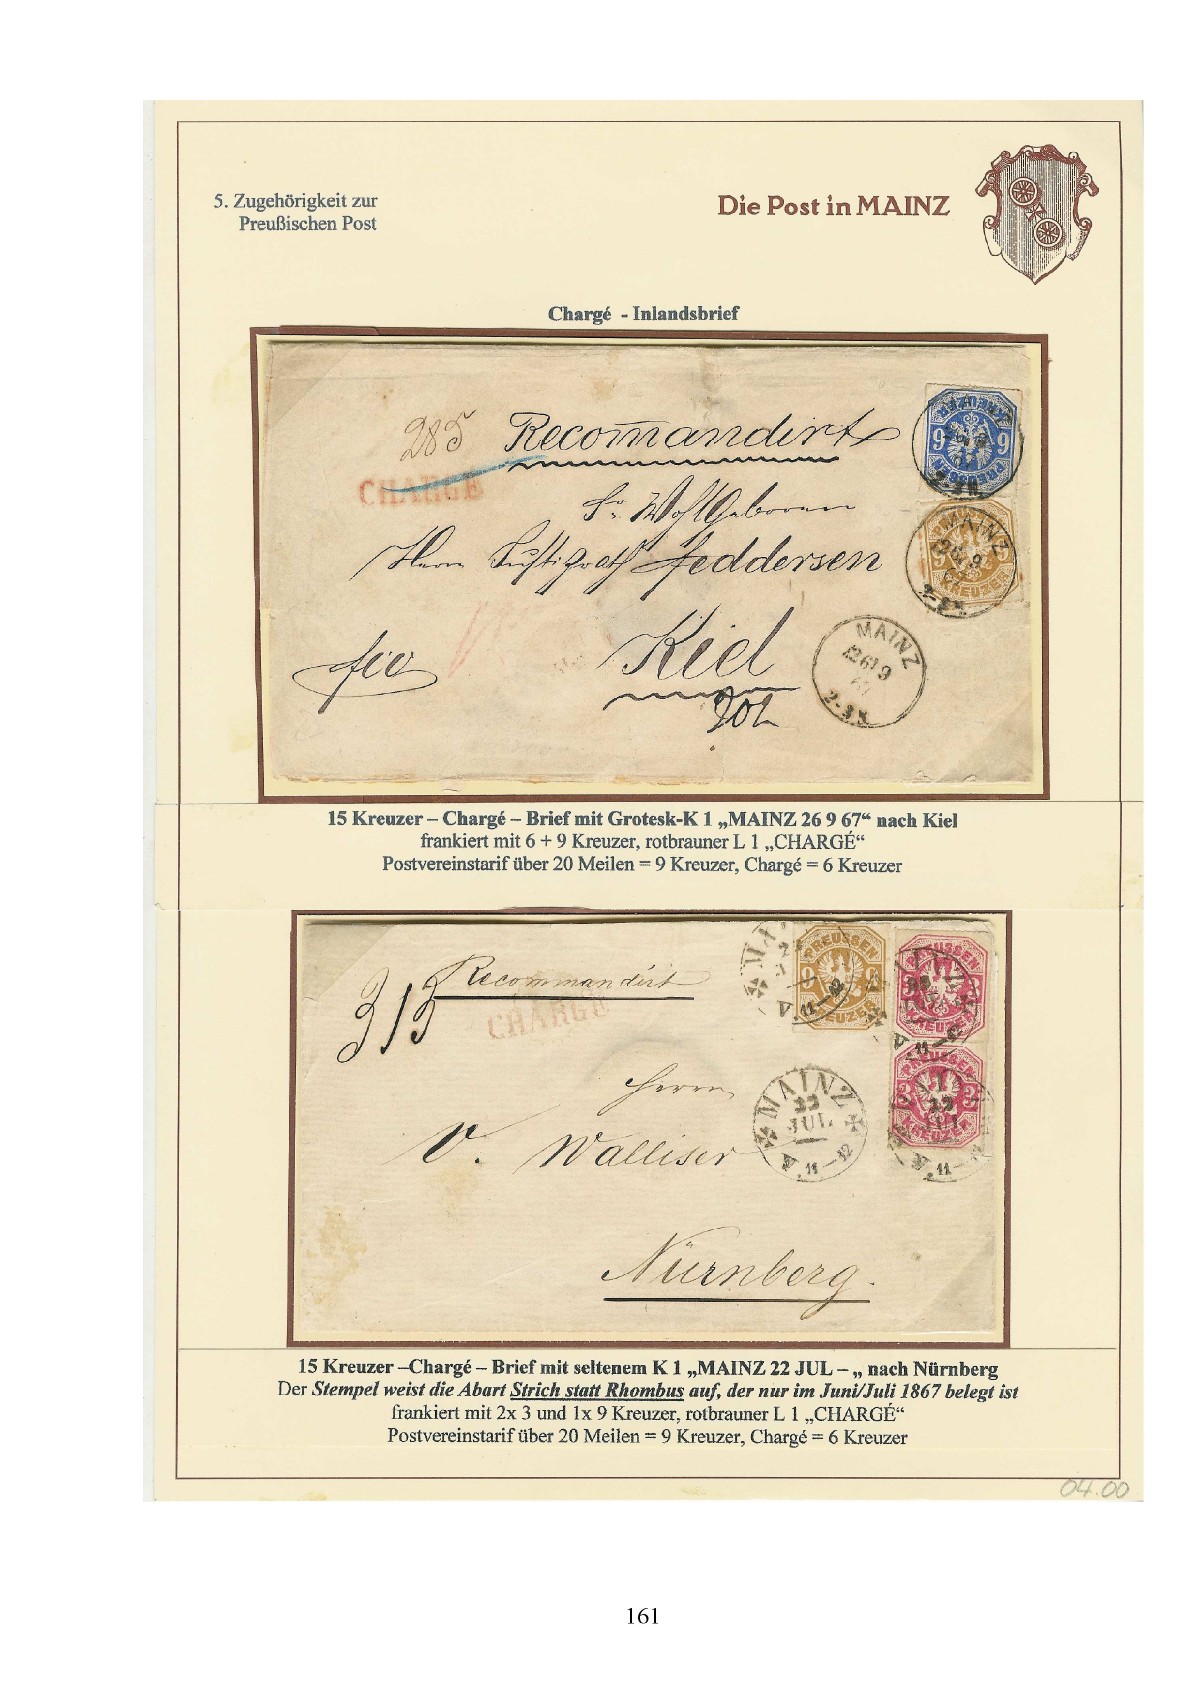 5. Zugehörigkeit zur
Preußischen Post
Die Post in MAINZ
Chargé - Inlandsbrief
285
Recomandirt
CHARGÉ
Sr. Wohlgeboren
Herrn Justizrath Feddersen
Kiel
MAINZ
26 9
67
MAINZ
26 9
PREUSSEN
KREUZER
9
9
15 Kreuzer – Chargé – Brief mit Grotesk-K 1 „MAINZ 26 9 67“ nach Kiel
frankiert mit 6 + 9 Kreuzer, rotbrauner L 1 „CHARGÉ“
Postvereinstarif über 20 Meilen = 9 Kreuzer, Chargé = 6 Kreuzer
313
Recommandirt
CHARGÉ
Herrn
V. Walliser
Nürnberg.
MAINZ
22
JUL
A. 11–12
PREUSSEN
9
KREUZER
PREUSSEN
3 3
KREUZER
15 Kreuzer –Chargé – Brief mit seltenem K 1 „MAINZ 22 JUL – „ nach Nürnberg
Der Stempel weist die Abart Strich statt Rhombus auf, der nur im Juni/Juli 1867 belegt ist
frankiert mit 2x 3 und 1x 9 Kreuzer, rotbrauner L 1 „CHARGÉ“
Postvereinstarif über 20 Meilen = 9 Kreuzer, Chargé = 6 Kreuzer
04.00
161